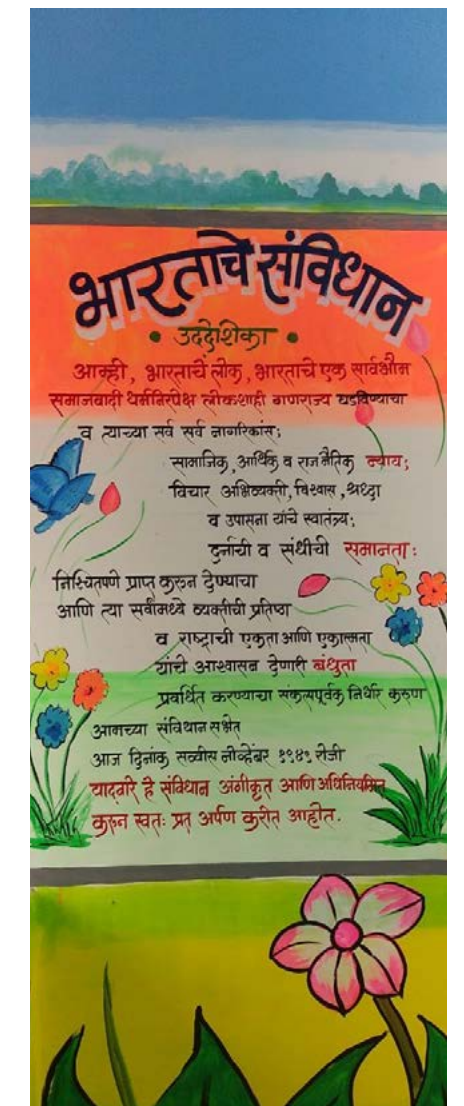 भारताचे संविधान
• उद्देशिका •
आम्ही, भारताचे लोक, भारताचे एक सार्वभौम
समाजवादी धर्मनिरपेक्ष लोकशाही गणराज्य घडविण्याचा
व त्याच्या सर्व सर्व नागरिकांस:
सामाजिक, आर्थिक व राजनैतिक न्याय;
विचार अभिव्यक्ती, विश्वास, श्रध्दा
व उपासना यांचे स्वातंत्र्य;
दर्जाची व संधीची समानता:
निश्चितपणे प्राप्त करुन देण्याचा
आणि त्या सर्वांमध्ये व्यक्तीची प्रतिष्ठा
व राष्ट्राची एकता आणि एकात्मता
यांचे आश्वासन देणारी बंधुता
प्रवर्धित करण्याचा संकल्पपूर्वक निर्धार करुण
आमच्या संविधान सभेत
आज दिनांक सव्वीस नोव्हेंबर १९४९ रोजी
याद्वारे हे संविधान अंगीकृत आणि अधिनियमित
करुन स्वतः प्रत अर्पण करीत आहोत.